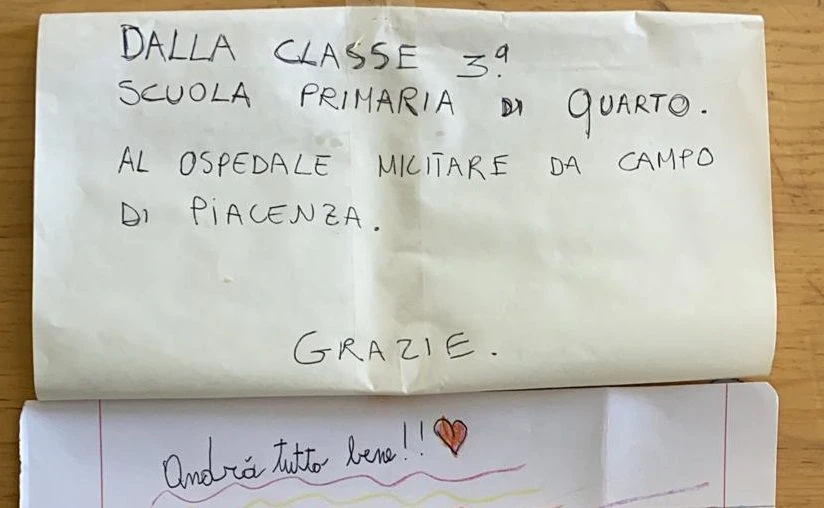 DALLA CLASSE 3.ª
SCUOLA PRIMARIA DI QUARTO.
AL OSPEDALE MILITARE DA CAMPO
DI PIACENZA.
GRAZIE.
Andrá tutto bene!!